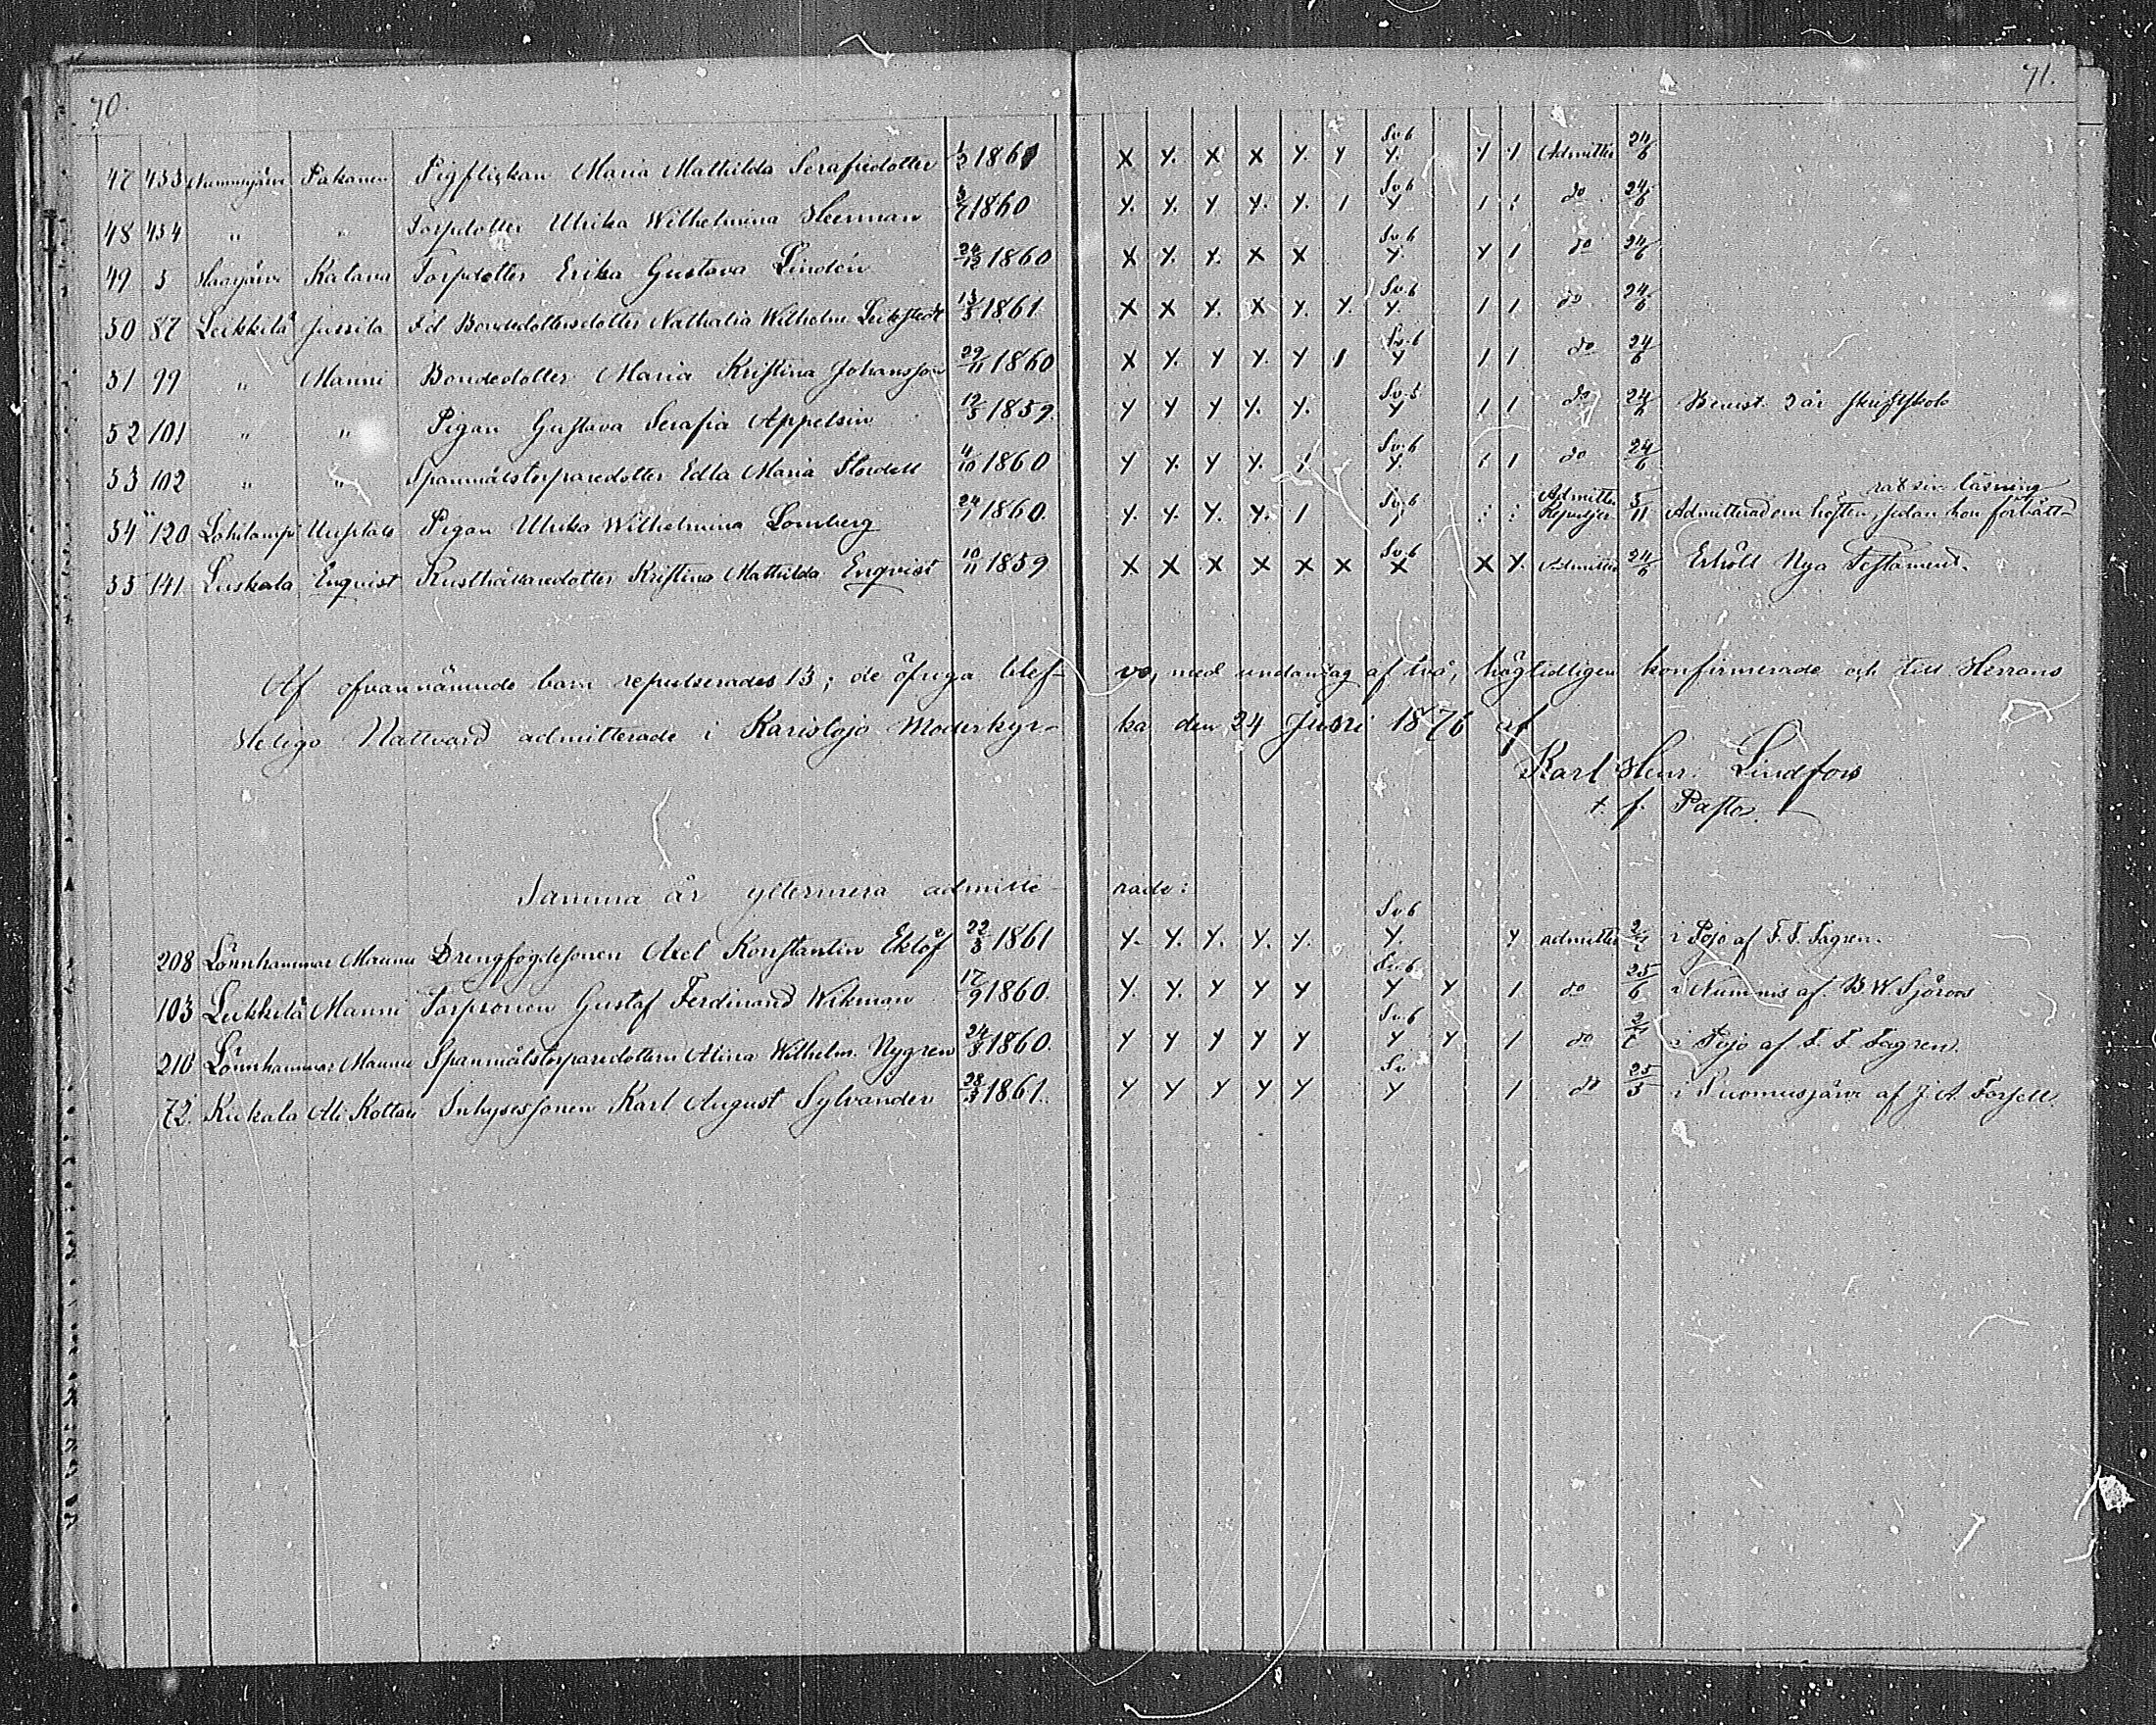 70.
71.
47 433 Nummijärvi Pakanen Pigflickan Maria Mathilda Serafiedotter 1861 x y. x x y. y Sv. 6 y. y 1 Admitter 24/6
48 434 " " Torpdotter Ulrika Wilhelmina Heerman 1860 y. y. y y. y. 1 Sv. 6 y 1 1 do 24/6
49 5 Haarjärvi Katava Torpdotter Erika Gustava Lindén 24/12 1860 x y. y. x x Sv. 6 y. y 1 do 24/6
50 87 Leikkilä Jussila F.d Bondedottersdotter Nathalia Wilhelm. Leikstedt 13/3 1861 x x y. x y. y. Sv. 6 y. 1 1 do 24/6
51 99 " Manni Bondedotter Maria Kristina Johansson 29/11 1860 x y. y y. y 1 Sv. 6 y 1 1 do 24/6
52 101 " " Pigan Gustava Serafia Appelsin 12/5 1859. y y y y. y. Sv. 5 y 1 1 do 24/6 Bevist. 2 år skriftskola
53 102 " " Spanmålstorparedotter Edla Maria Flordell 4/10 1860 y y. y y. 1 Sv. 6 y. 1 1 do 24/6
54 120 Lohilampi Uusitalo Pigan Ulrika Wilhelmina Lomberg 24/7 1860. y. y. y. y. 1 Sv. 6 1 Admitter Repulser 5/11 Admitterad om hösten, sedan hon förbätt-
rat sin läsning
55 141. Luskala Enqvist Rusthållaredotter Kristina Mathilda Enqvist 10/11 1859 x x x x x x Sv. 6 x x y. Admitter 24/6 Erhöll Nya Testament.
Af ofvannämnde barn repulserades 13; de öfriga blef- vo, med undantag af två, högtidligen konfirmerade och till Herrans
Heliga Nattvard admitterade i Karislojo Moderkyr- ka den 24 Juni 1876 af
Karl Henr. Lindfors
t. f. Pastor.
Samma år yttermera admitte- rade:
208 Lönnhammar Maunu Drengfogdesonen Axel Konstantin Eklöf 22/3 1861 y. y. y. y. y. Sv. 6 y. y admitter i Pojo af F. F. Fagren.
103 Leikkilä Manni Torpsonen Gustaf Ferdinand Wikman 17/9 1860. y. y. y y y Sv. 6 y y 1 do 25/6 i Nummis af B. W. Sjöroos
210 Lönnhammar Maunu Spanmålstorparedottern Alina Wilhelm. Nygren 24/8 1860. y y y y y Sv. 6 y y 1 do i Pojo af F. F. Fagren.
72. Kukala Ali Kottari Inhysessonen Karl August Sylvander 28/3 1861. y y y y y Sv y 1 do 25/5 i Suomusjärvi af J. A. Forsell.